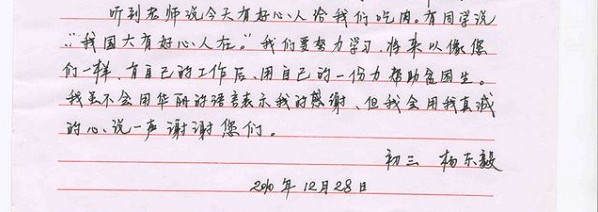 听到老师说今天有好心人给我们吃肉。有同学说
：“我国大有好心人在。”我们要努力学习，将来以像您
们一样，有自己的工作后，用自己的一份力帮助贫困生。
我虽不会用华丽的语言表示我的感谢，但我会用我真诚
的心、说一声谢谢您们。
初三 杨东毅
2010年12月28日